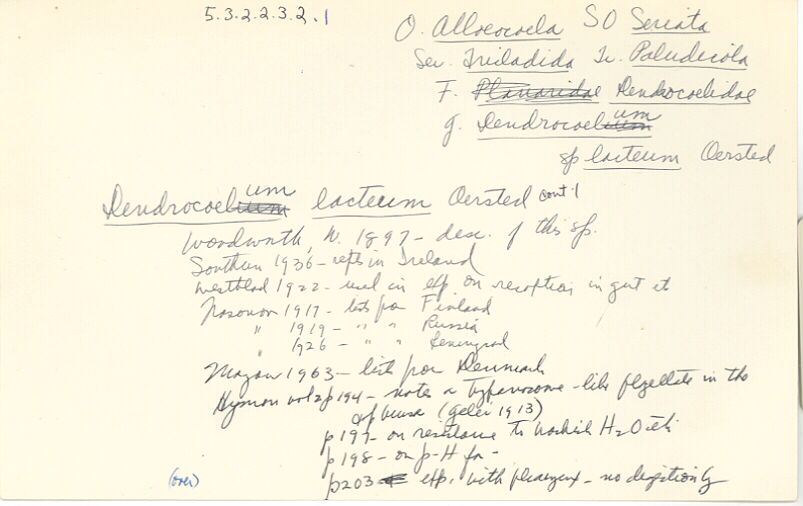 5.3.2.2.3.2.1
O. Alloeocoela SO Seriata
Ser. Tricladida Tr. Paludicola
F. Planaridae Dendrocoelidae
g. Dendrocoelum
sp lacteum Oersted
Dendrocoelum lacteum Oersted cont'd
Woodworth, W. 1897 - desc. of this sp.
Southern 1936 - repts in Ireland
Westblad 1922 - used in exp. on reception in gut
Nasonov 1917 - lists for Finland
" 1919 - " " Russia
" 1926 - " " Leningrad
1963 - lists for Denmark
Hyman vol 2 p 194 - notes a trypanosome-like flagellate in the
bursa (Gelei 1913)
p 197 - on resistance to H2O
p 198 - on p-H for -
p 203 exp. with pharynx - no digestion by
(over)